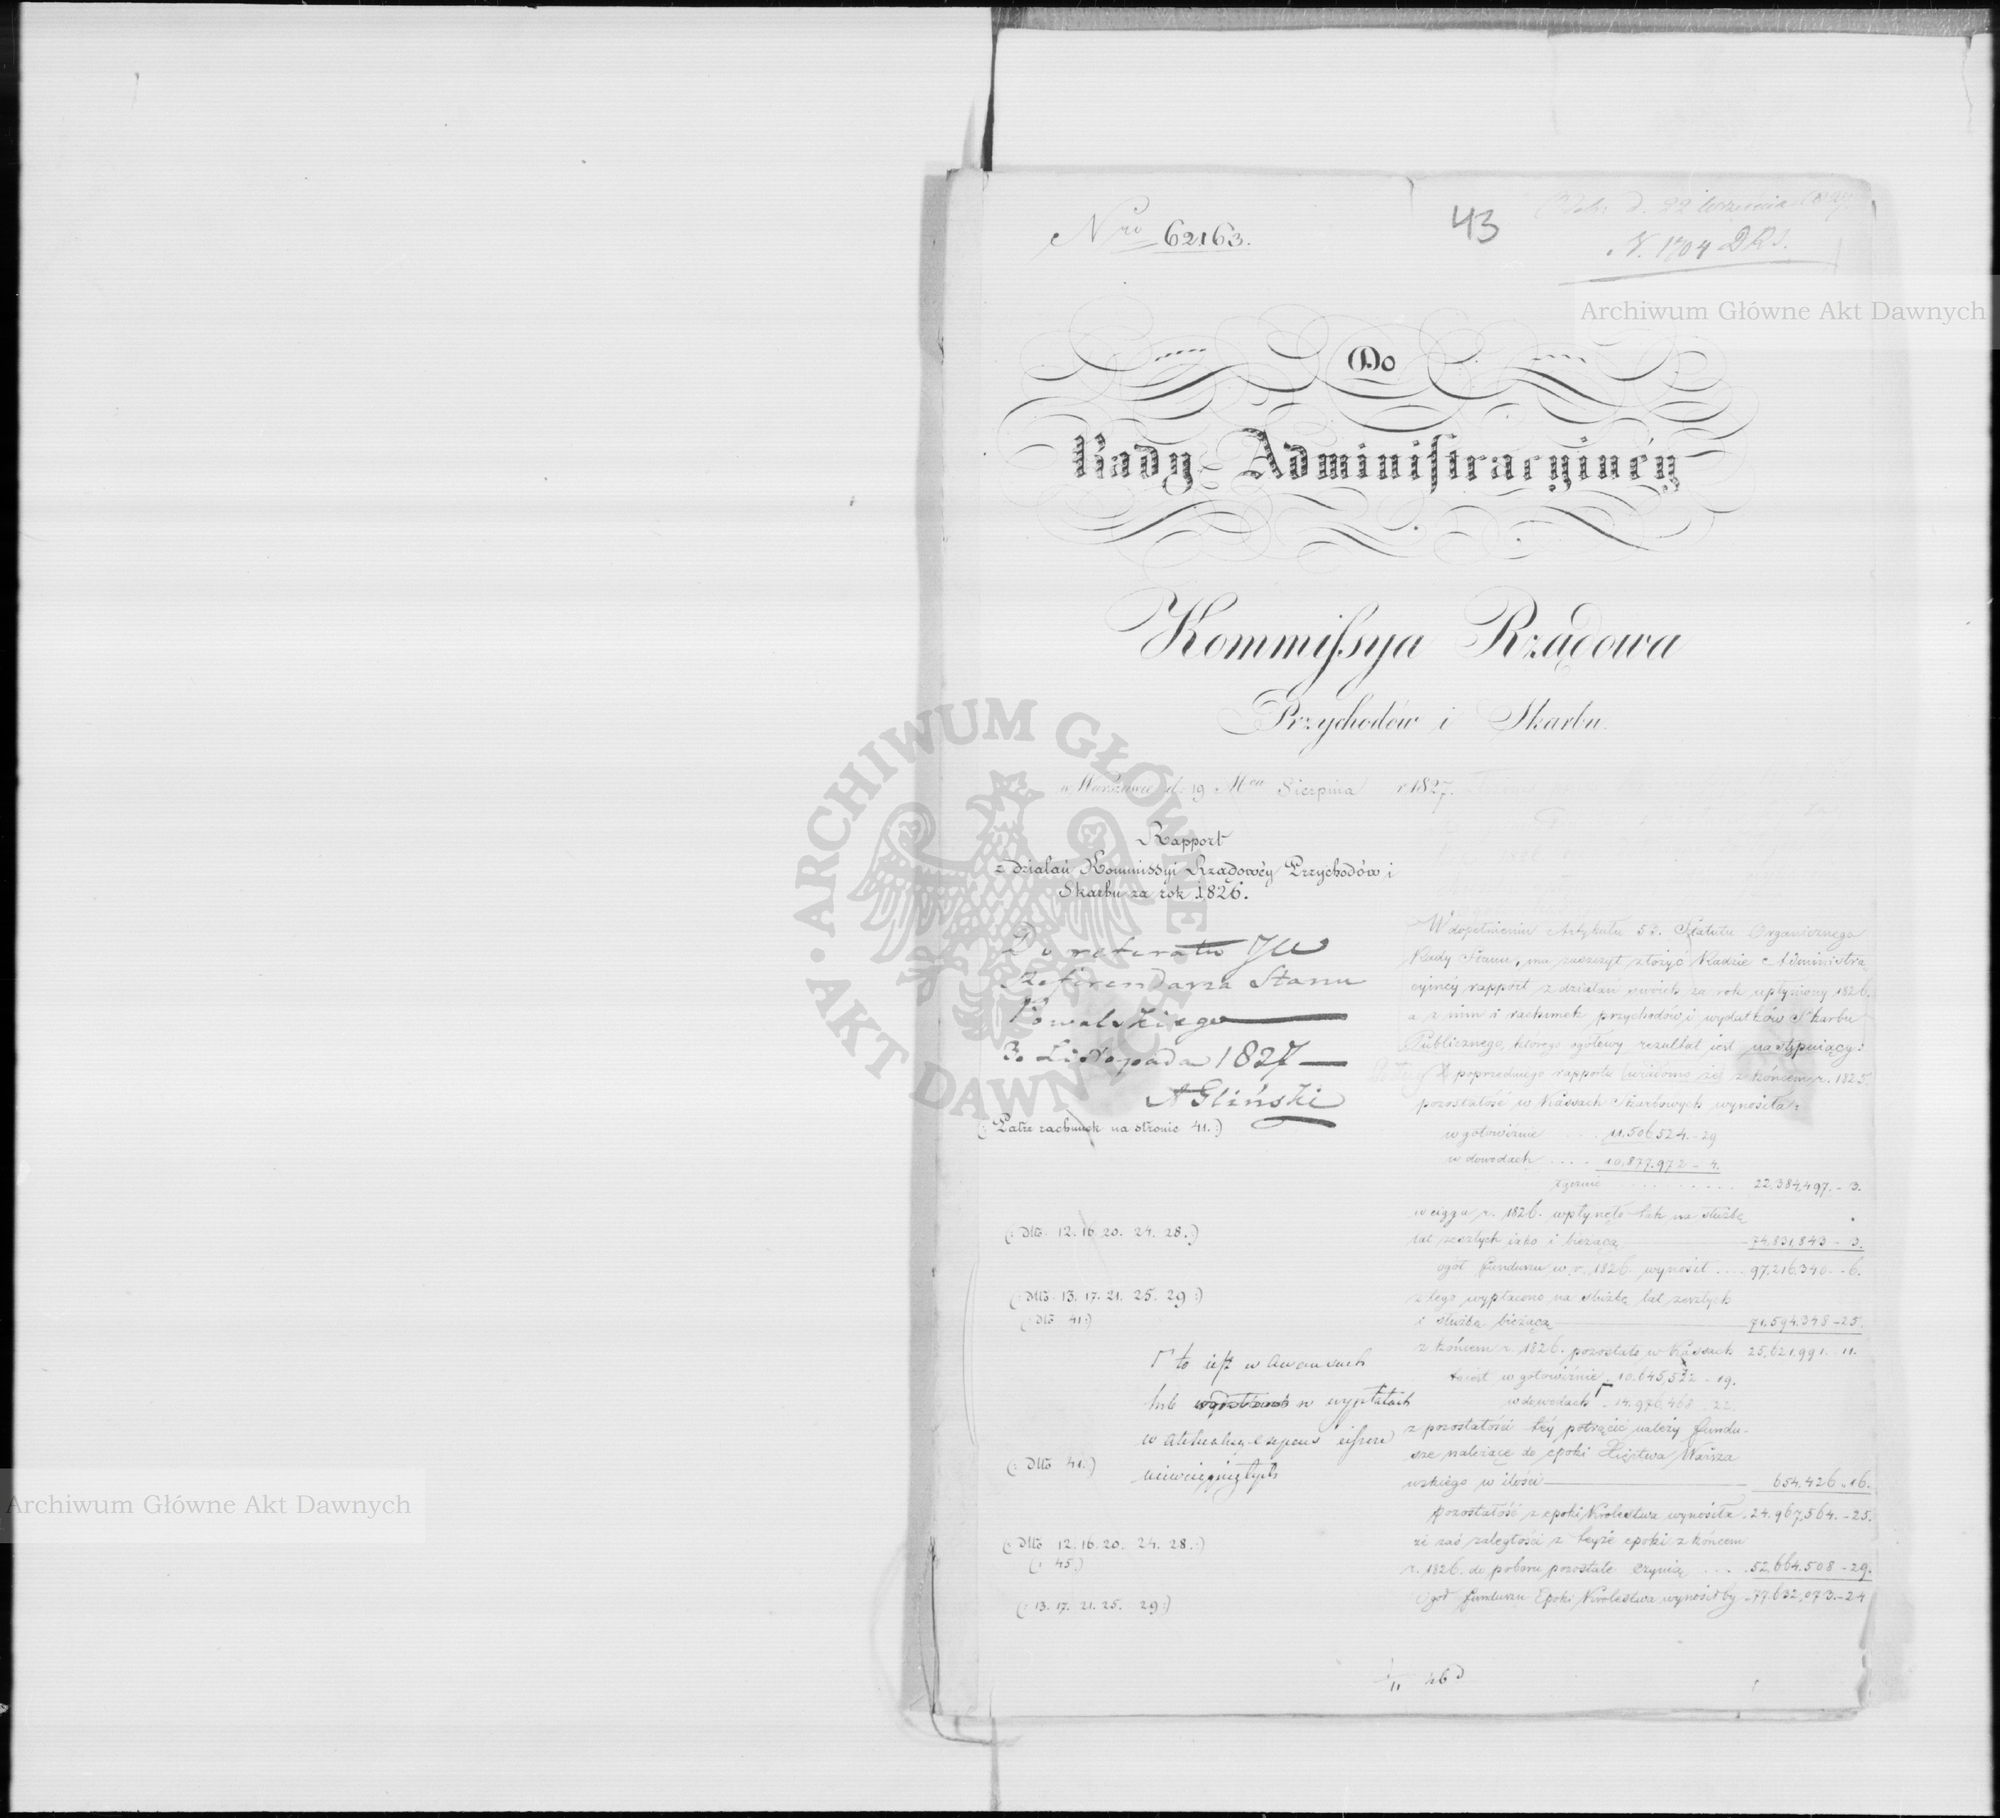 Nro 62163.
43
d. 22 1827
N. 1704 DRS.
Do
Rady Administracyinéy
Kommissya Rządowa
Przychodów i Skarbu.
w Warszawie d. 19 Mca Sierpnia r 1827.
Rapport
z działań Kommissyi Rządowéy Przychodów i
Skarbu za rok 1826.
Do referatu JW
Referendarza Stanu
Kowalskiego
30 Listopada 1827
AGliński
(: Patrz rachunek na stronie 41. :)
(: Dtto 12. 16. 20. 24. 28. :)
(: Dtto 13. 17. 21. 25. 29 :)
(: Dtto 41 :)
Γ to iest w awansach
lub w wypłatach
w
(: Dtto 41. :)
(: Dtto 12. 16. 20. 24. 28. :)
(: 45. :)
(: 13. 17. 21. 25. 29 :)
W dopełnieniu Artykułu 53. Statutu Organicznego
Rady Stanu, ma zaszczyt złożyć Radzie Administra-
cyinéy rapport z działań swoich za rok upłyniony 1826.
a z nim i rachunek przychodów i wydatków Skarbu
Publicznego, którego ogółowy rezultat iest następuiący:
Z poprzedniego rapportu wiadomo że z końcem r. 1825
pozostałość w Kassach Skarbowych wynosiła:
w gotowiźnie .... 11.506,524. - 29
w dowodach .... 10.877.972 - 4.
łącznie .......... 22,384,497. - 3.
w ciągu r. 1826. wpłynęło tak na służbę
lat zeszłych iako i bieżącą 74,831,843 - 3.
ogół funduszu w r. 1826. wynosił .... 97,216,340. - 6.
z tego wypłacono na służbę lat zeszłych
i służbę bieżącą 71.594.348 - 25.
z końcem r. 1826. pozostało w Kassach 25,621,991. - 11.
to iest w gotowiźnie . 10.645,522 - 19.
w dowodach Γ . 14.976,468 - 22.
z pozostałości téy potrącić należy fundu-
sze należące do epoki Xięstwa Warsza
wskiego w ilości 654,426 - 16.
pozostałość z epoki Królestwa wynosiła . 24.967,564. - 25.
że zaś zaległości z teyże epoki z końcem
r. 1826. do poboru pozostałe czynią .... 52,664,508 - 29.
Ogół funduszu Epoki Królestwa wynosiłby . 77.632,073. - 24
Archiwum Główne Akt Dawnych
Archiwum Główne Akt Dawnych
ARCHIWUM GŁÓWNE · AKT DAWNYCH ·